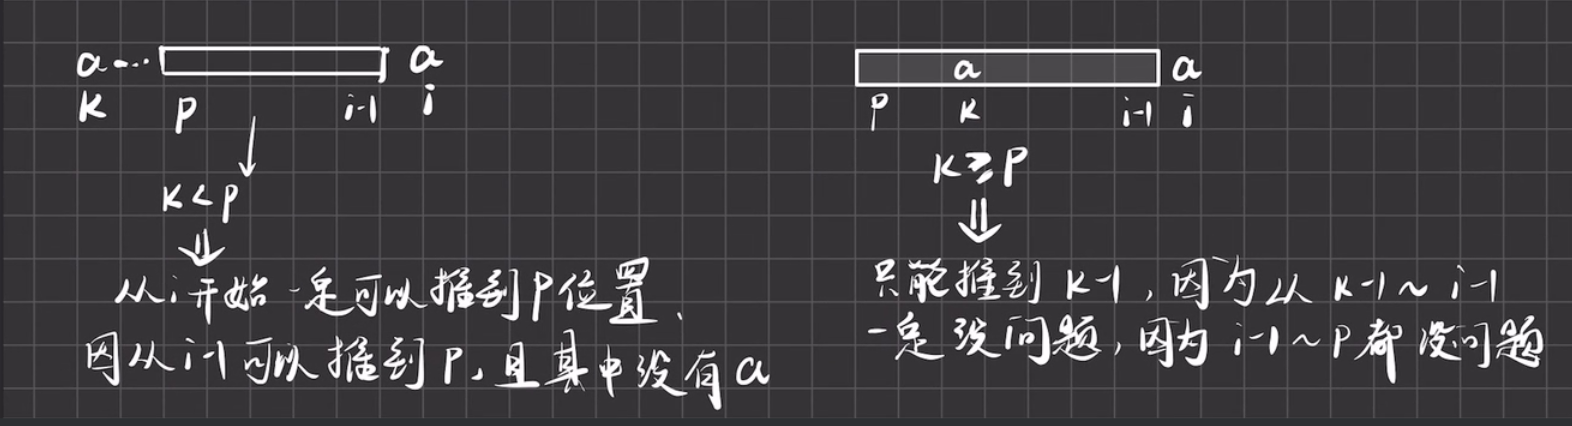 a... a
K p i-1 i
K<p
从i开始一定可以推到P位置，
因从i-1可以推到P，且其中没有a
a a
p K i-1 i
K≥P
只能推到 K-1，因为从 K-1 ~ i-1
一定没问题，因为 i-1 ~ P 都没问题